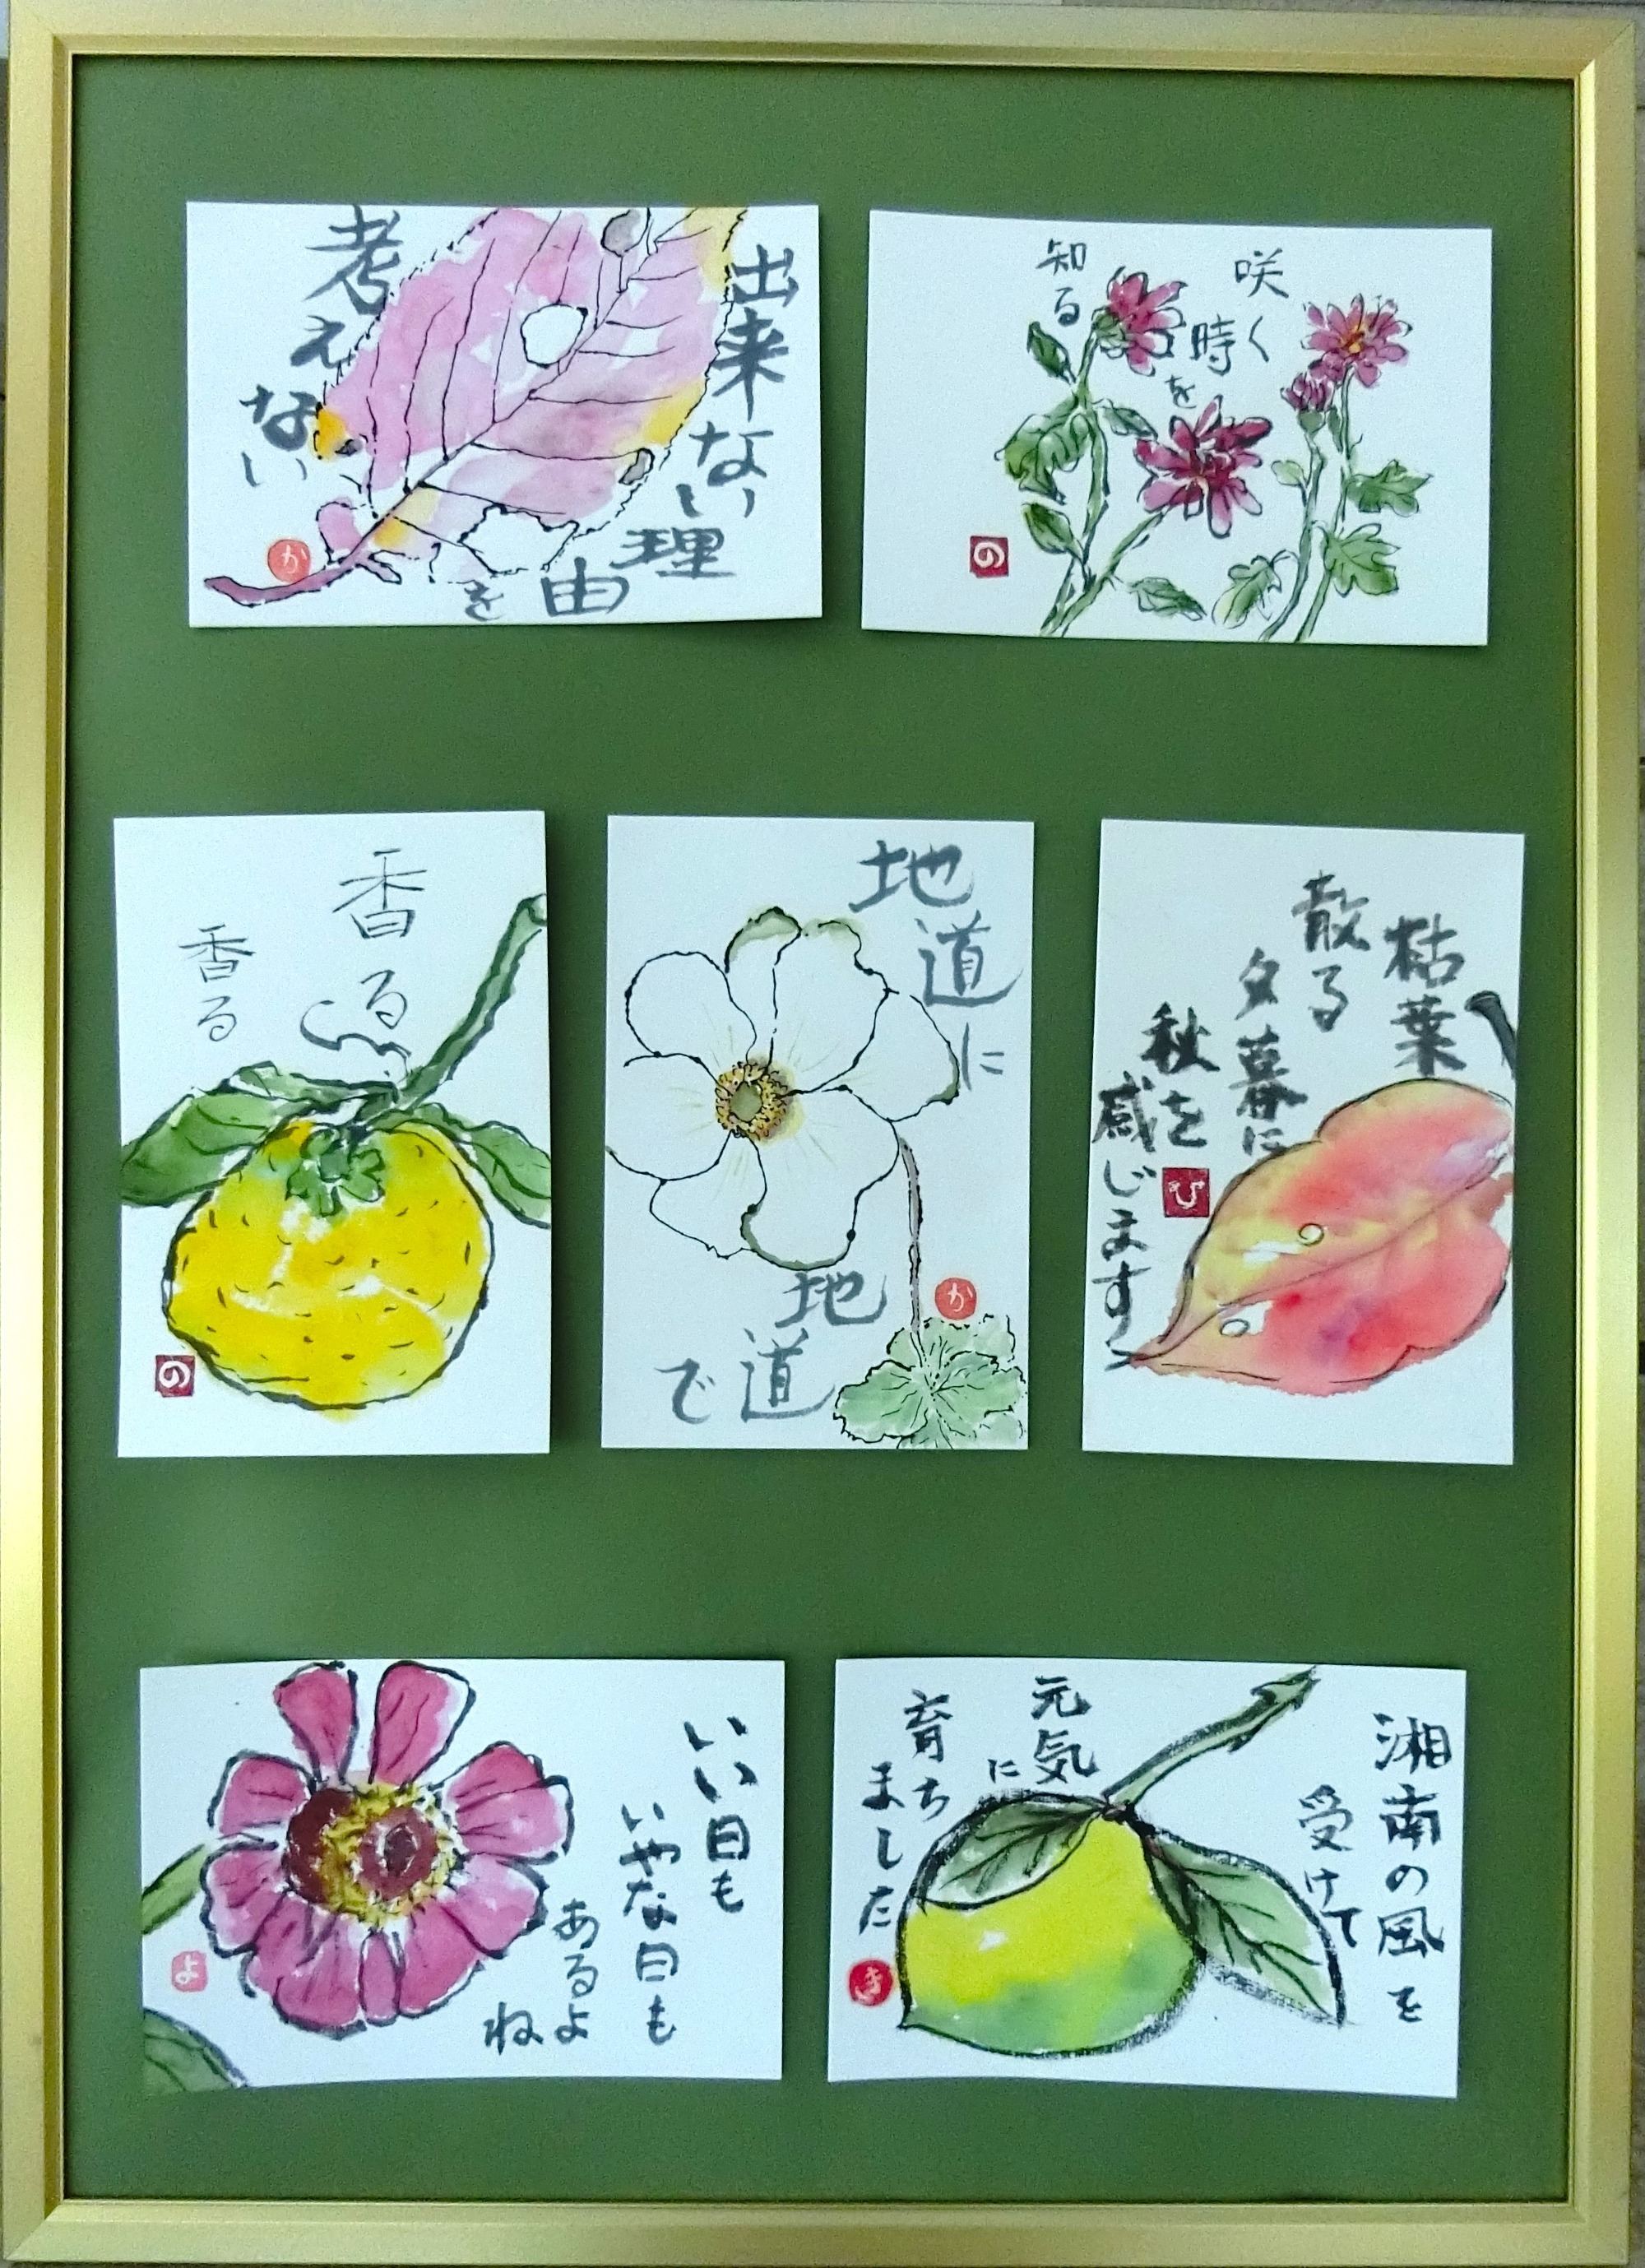 出来ない
理由
を
考えない
か
咲く
時を
知る
の
香る
香る
の
地道に
地道
で
か
枯葉
散る
夕暮に
秋を
感じます
ひ
いい日も
いやな日も
あるよ
ね
よ
湘南の風を
受けて
元気
に
育ち
ました
き